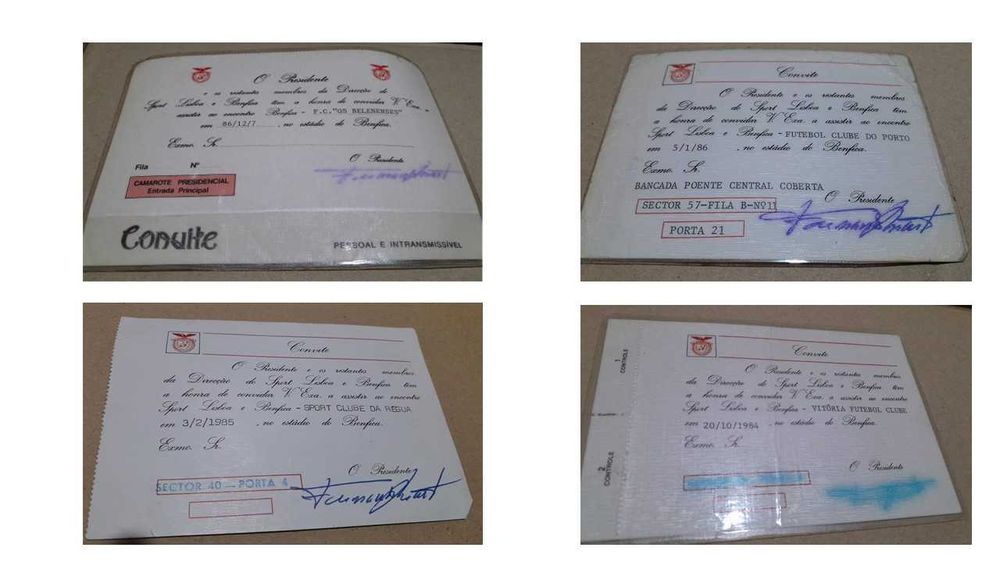 O Presidente
e os restantes membros da Direcção do
Sport Lisboa e Benfica têm a honra de convidar V. Exa. a
assistir ao encontro Benfica - F.C."OS BELENENSES"
em 86/12/7 , no estádio do Benfica.
Exmo. Sr.
O Presidente
Fila Nº
CAMAROTE PRESIDENCIAL
Entrada Principal
Convite
PESSOAL E INTRANSMISSÍVEL
Convite
O Presidente e os restantes membros
da Direcção do Sport Lisboa e Benfica têm
a honra de convidar V. Exa. a assistir ao encontro
Sport Lisboa e Benfica - FUTEBOL CLUBE DO PORTO
em 5/1/86 , no estádio do Benfica.
Exmo. Sr.
BANCADA POENTE CENTRAL COBERTA
O Presidente
SECTOR 57-FILA B-Nº11
PORTA 21
Convite
O Presidente e os restantes membros
da Direcção do Sport Lisboa e Benfica têm
a honra de convidar V. Exa. a assistir ao encontro
Sport Lisboa e Benfica - SPORT CLUBE DA RÉGUA
em 3/2/1985 , no estádio do Benfica.
Exmo. Sr.
O Presidente
SECTOR 40 — PORTA 4
1
CONTROLE
2
CONTROLE
Convite
O Presidente e os restantes membros
da Direcção do Sport Lisboa e Benfica têm
a honra de convidar V. Exa. a assistir ao encontro
Sport Lisboa e Benfica - VITÓRIA FUTEBOL CLUBE
em 20/10/1984 , no estádio do Benfica.
Exmo. Sr.
O Presidente